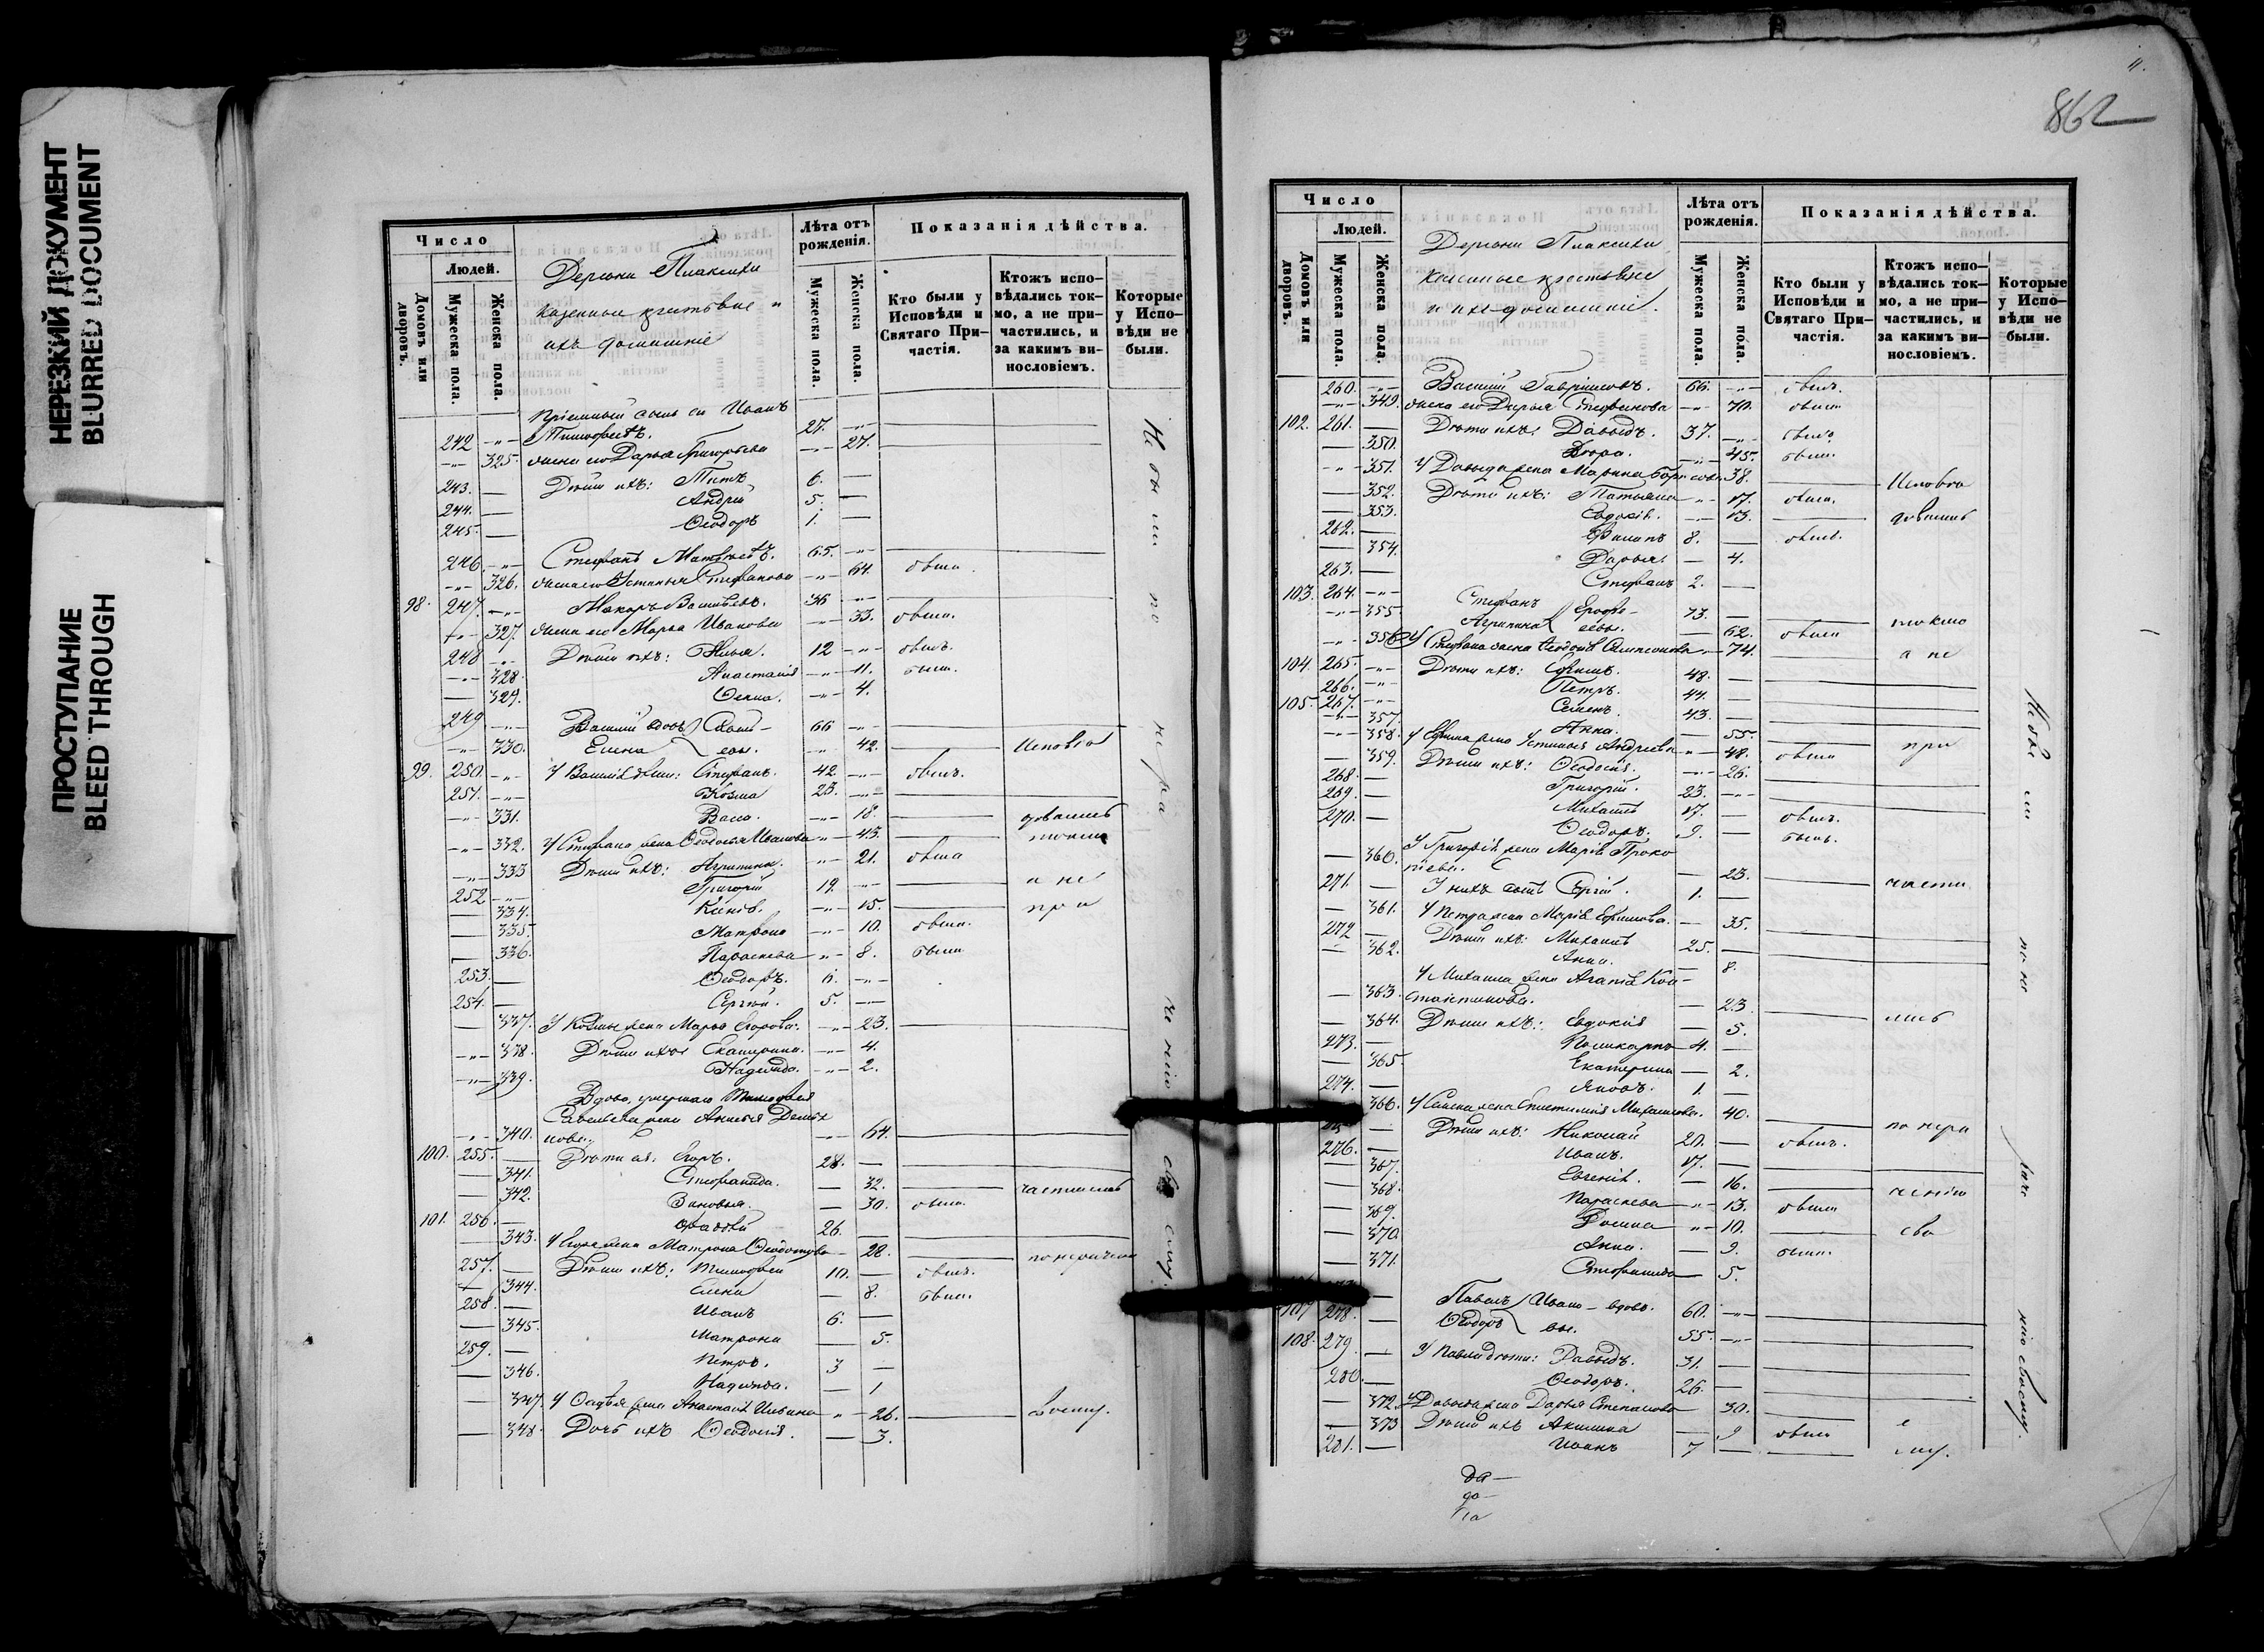 НЕРЕЗКИЙ ДОКУМЕНТ
BLURRED DOCUMENT
ПРОСТУПАНИЕ
BLEED THROUGH
Число
Домовъ или дворовъ.
Людей.
Мужеска пола.
Женска пола.
Деревни Плаксихи
казенные крестьяне
ихъ домашніе
Лѣта отъ рожденія.
Мужеска пола.
Женска пола.
Показанія дѣйства.
Кто были у Исповѣди и Святаго Причастія.
Ктожъ исповѣдались токмо, а не причастились, и за какимъ винословіемъ.
Которые у Исповѣди не были.
пріемный сынъ Иванъ
242 Тимофеевъ. 27.
325. жена его Дарья Григорьева 27.
243. Дѣти ихъ: Титъ 6.
244. Андрей 5.
245. Ѳеодоръ 1.
246. Стефанъ Матвѣевъ. 65.
326. жена его Устинья Стефанова 64. была
98. 247. Макаръ Васильевъ. 36
327. жена его Марья Иванова 33. была.
248 Дѣти ихъ: Илья. 12 былъ.
328. Анастасія 11. была.
329. 4.
249 Василій вдовъ 66
330. Елена евы. 42. Исповѣ
99. 250. У Василія дѣти: Стефанъ. 42 былъ.
251. Козма 23.
331. Васса. 18. довались
332. У Стефана жена Ѳеодосья Иванова 43. токмо
333 Дѣти ихъ: Агрипина. 21. была
252 Григорій 19. а не
334. 15. при
335. Матрона 10. была.
336. Параскева 8. была
253. Ѳеодоръ. 6.
254. Сергій. 5.
337. У Козмы жена Марья Егорова. 23.
338. Дѣти ихъ Екатерина. 4.
339. Надежда. 2.
Вдова, умершаго Тимофея
Савельева жена
340. нова. 64.
100. 255. Дѣти ея: Егоръ. 28.
341. Стефанида. 32.
342. Зиновья. 30. была. частились
101. 256. 26.
343. У Егора жена Матрона 28.
257. Дѣти ихъ: Тимофей 10. былъ. по нераче
344. Елена 8. была.
258. Иванъ 6.
345. Матрона 5.
259. Петръ. 3
346. Надежда. 1
347. жена Анастасія Ильина 26. своему.
348. Дочь ихъ Ѳеодосія. 3.
Не бы ли по не ра че нію сво ему.
862
Число
Домовъ или дворовъ.
Людей.
Мужеска пола.
Женска пола.
Деревни Плаксихи
казенные крестьяне
и ихъ домашніе.
Лѣта отъ рожденія.
Мужеска пола.
Женска пола.
Показанія дѣйства.
Кто были у Исповѣди и Святаго Причастія.
Ктожъ исповѣдались токмо, а не причастились, и за какимъ винословіемъ.
Которые у Исповѣди не были.
260. Василій Гавріиловъ. 66. былъ.
349. жена его Дарья Стефанова 70. была
102. 261. Дѣти ихъ: Давыдъ. 37. былъ.
350. 45. была.
351. У Давыда жена Марина Борисова 38. Исповѣ
352. Дѣти ихъ: Татьяна 17. была.
353. Евдокія. 13. довались
262. Филипъ 8. былъ.
354. Дарья. 4.
263. Стефанъ 2.
103. 264. Стефанъ Ерофе- 73.
355. Агрипина евы. 62. была токмо
356. У Стефана жена Ѳеодосія Самсонова 74. а не
104. 265. Дѣти ихъ: Ефимъ. 48.
266. Петръ. 44.
105. 267. Семенъ. 43.
357. Анна. 55.
358. У Ефима жена Устинья Андреева 48. была при
359. Дѣти ихъ: Ѳеодосія. 26.
268. Григорій. 23.
269. Михаилъ 17. былъ.
270. Ѳеодоръ. 9. былъ.
У Григорія жена Марія Проко
360. пьева. 23.
271. У нихъ сынъ Сергій. 1. части
361. У Петра жена Марія Ефимова. 35.
272 Дѣти ихъ: Михаилъ 25.
362. Анна. 8.
У Михаила жена Агапія Кон-
363. стантинова. 23.
364. Дѣти ихъ: Евдокія 5. лись
273. Поликарпъ 4.
365. Екатерина 2.
274. Яковъ. 1.
366. У Семена жена Михаилова. 40.
Дѣти ихъ: Николай 20. былъ. по нера
276. Иванъ. 17.
367. Евгенія. 16.
368. Параскева 13. была ченію
369. 10.
370. Анна. 9. была. сво
371. Стефанида 5.
107 278. Павелъ Ивано- вдовъ. 60.
Ѳеодоръ вы. 55.
108. 279. У Павла дѣти: Давыдъ. 31.
280. Ѳеодоръ. 26.
372. У Давыда жена Дарья Степанова 30.
373 Дѣти ихъ Акилина 9 была е
281. Иванъ 7 му.
Не бы ли по не раче нію своему.